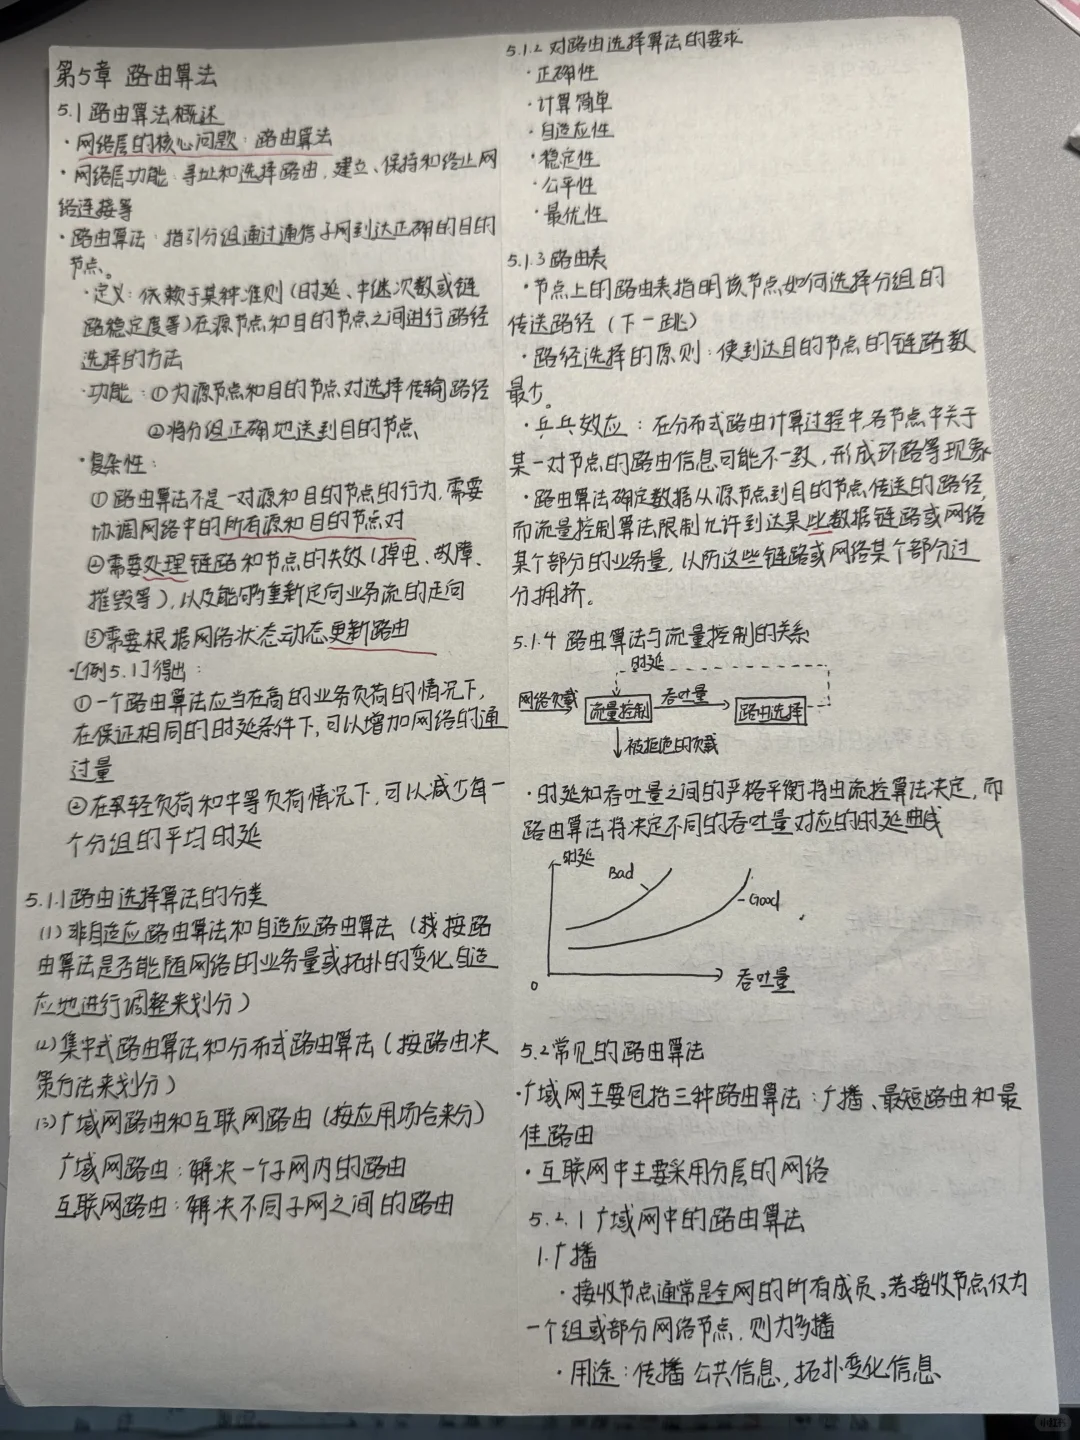 第5章 路由算法
5.1 路由算法概述
·网络层的核心问题：路由算法
·网络层功能：寻址和选择路由，建立、保持和终止网
络连接等
·路由算法：指引分组通过通信子网到达正确的目的
节点。
·定义：依赖于某种准则（时延、中继次数或链
路稳定度等）在源节点和目的节点之间进行路径
选择的方法
·功能：①为源节点和目的节点对选择传输路径
②将分组正确地送到目的节点
·复杂性：
①路由算法不是一对源和目的节点的行为，需要
协调网络中的所有源和目的节点对
②需要处理链路和节点的失效（掉电、故障、
摧毁等），以及能够重新定向业务流的走向
③需要根据网络状态动态更新路由
·[例5.1]得出：
①一个路由算法应当在高的业务负荷的情况下，
在保证相同的时延条件下，可以增加网络的通
过量
②在轻负荷和中等负荷情况下，可以减少每一
个分组的平均时延
5.1.1 路由选择算法的分类
(1) 非自适应路由算法和自适应路由算法（按路
由算法是否能随网络的业务量或拓扑的变化自适
应地进行调整来划分）
(2) 集中式路由算法和分布式路由算法（按路由决
策方法来划分）
(3) 广域网路由和互联网路由（按应用场合来分）
广域网路由：解决一个子网内的路由
互联网路由：解决不同子网之间的路由
5.1.2 对路由选择算法的要求
·正确性
·计算简单
·自适应性
·稳定性
·公平性
·最优性
5.1.3 路由表
·节点上的路由表指明该节点如何选择分组的
传送路径（下一跳）
·路径选择的原则：使到达目的节点的链路数
最少。
·乒乓效应：在分布式路由计算过程中，各节点中关于
某一对节点的路由信息可能不一致，形成环路等现象
·路由算法确定数据从源节点到目的节点传送的路径，
而流量控制算法限制允许到达某些数据链路或网络
某个部分的业务量，以防这些链路或网络某个部分过
分拥挤。
5.1.4 路由算法与流量控制的关系
时延
网络负载 流量控制 吞吐量 路由选择
被拒绝的负载
·时延和吞吐量之间的严格平衡将由流控算法决定，而
路由算法将决定不同的吞吐量对应的时延曲线
时延
Bad
Good
0
吞吐量
5.2 常见的路由算法
·广域网主要包括三种路由算法：广播、最短路由和最
佳路由
·互联网中主要采用分层的网络
5.2.1 广域网中的路由算法
1.广播
·接收节点通常是全网的所有成员。若接收节点仅为
一个组或部分网络节点，则为多播
·用途：传播公共信息，拓扑变化信息
小红书